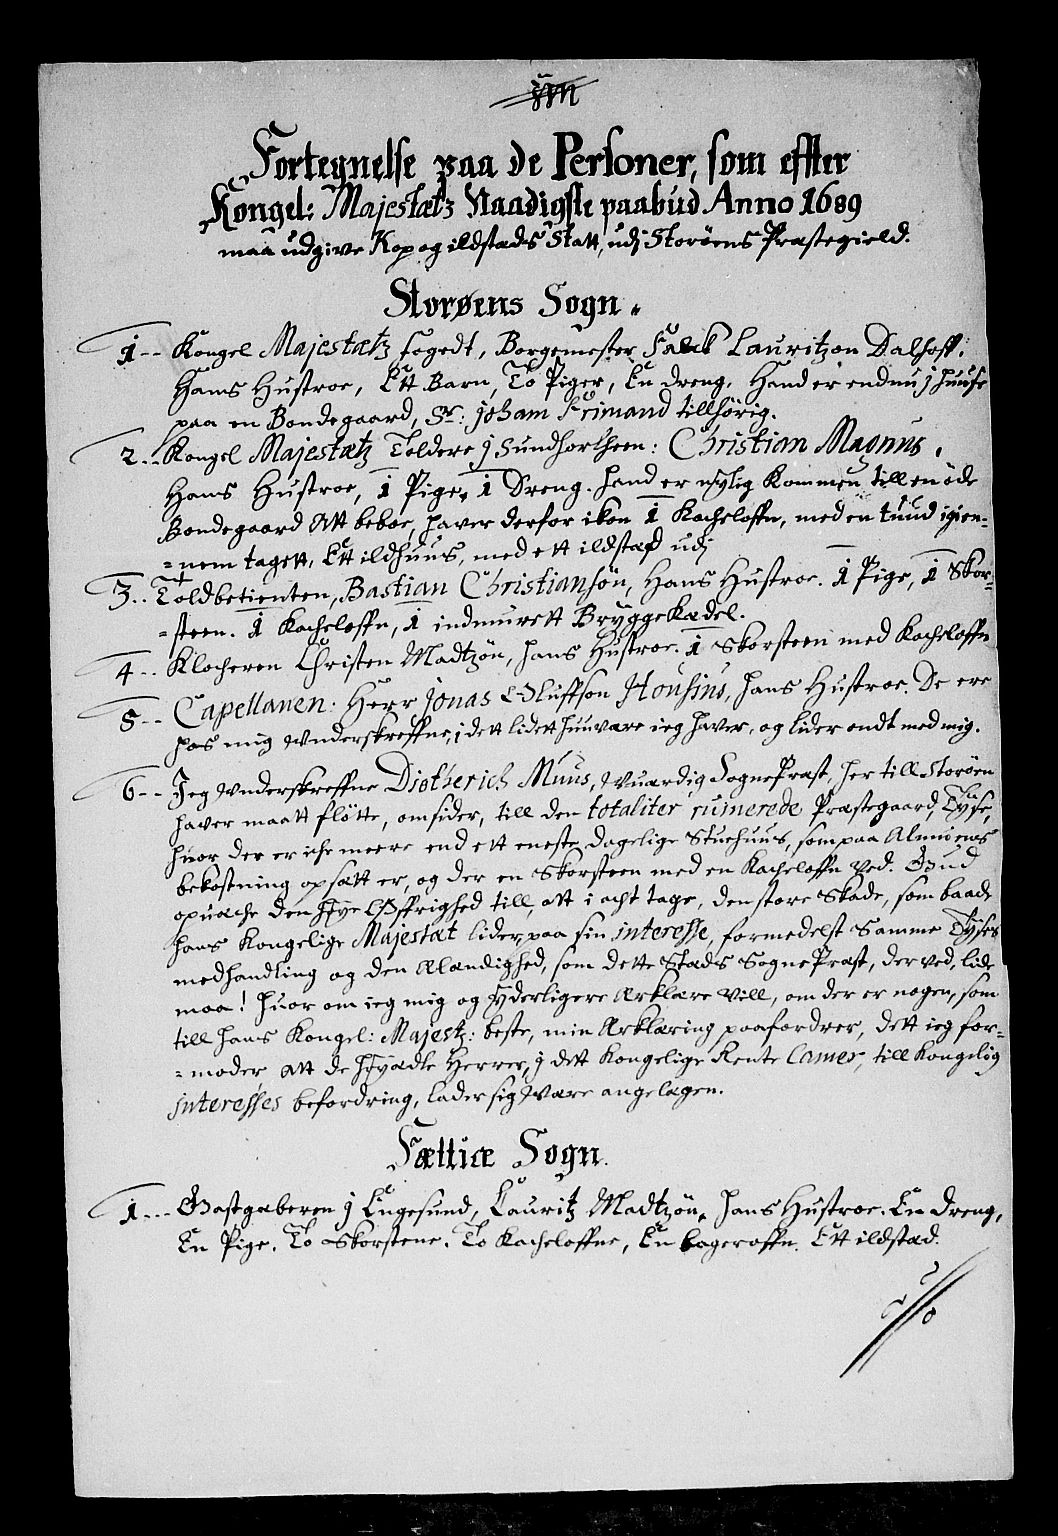 Fortegnelse paa de Personer, som effter
Kongel: Majestætz Naadigste paabud Anno 1689
maa udgive Kop og ildstæds Skatt, udj Storøens Præstegield.
Storøens Sogn.
1-- Kongel Majestætz fogedt, Borgemester Falck Lauritzon Dalhoff.
Hans Hustroe, Ett Barn, To Piger, En dreng. Hand er endnu j huuse
paa en Bondegaard, Sr: Joham Frimand tillhörig.
2.. Kongel Majestætz Toldere j Sundhortheen: Christian Magnus.
Hans Hustroe, 1 Pige, 1 Dreng. Hand er nylig kommen till en öde
Bondegaard Att beboe, haver derfor ikon 1 Kacheloffn, med en tuud igien-
=nem tagett, Ett ildhuus, med ett ildstæd udj
3.. Toldbetienten, Bastian Christiansön, Hans Hustroe. 1 Pige, 1 Skor-
=steen. 1 Kacheloffn, 1 indmurett Bryggekædel.
4-- Klocheren Christen Madtzön, hans Hustroe. 1 Skorsteen med Kacheloffn
5-- Capellanen: Herr Jonas Oluffson Housius, hans Hustroe. De ere
hos mig Underskreffne, j dett lidett huuvære ieg haver, og lider ondt med mig.
6-- Jeg Underskreffne Diætherich Muus, Uværdig SognePræst, her till Storöen
haver maatt flötte, omsider, till den totaliter ruinerede Præstegaard, Tyse,
huor der er iche meere end ett eneste dagelige Stuehuus, som paa Almuens
bekostning opsatt er, og der en Skorsteen med en Kacheloffn ved. Gud
opuache den Höye Öffrighed till, att i acht tage, den store Skade, som baade
hans Kongelige Majestæt lider, paa sin interesse, formedelst Samme Tyses
medhandling og den Ælendighed, som dette Stæds SognePræst, der ved, lide
maa! Huor om ieg mig og Yderligere Ærklære vill, om der er nogen, som
till hans Kongel: Majestz: beste, min Ærklæring paafordrer, dett ieg for-
=moder att de Höyædle Herrer, j dett Kongelige Rente Camer, till Kongelig
interesses befordring, lader sig være angelægen.
Fættiæ Sogn.
1... Gastgæberen j Engesund, Lauritz Madtzön, Hans Hustroe. En Dreng,
En Pige. To Skorstene. To Kacheloffne, En bageroffn. Ett ildstæd.